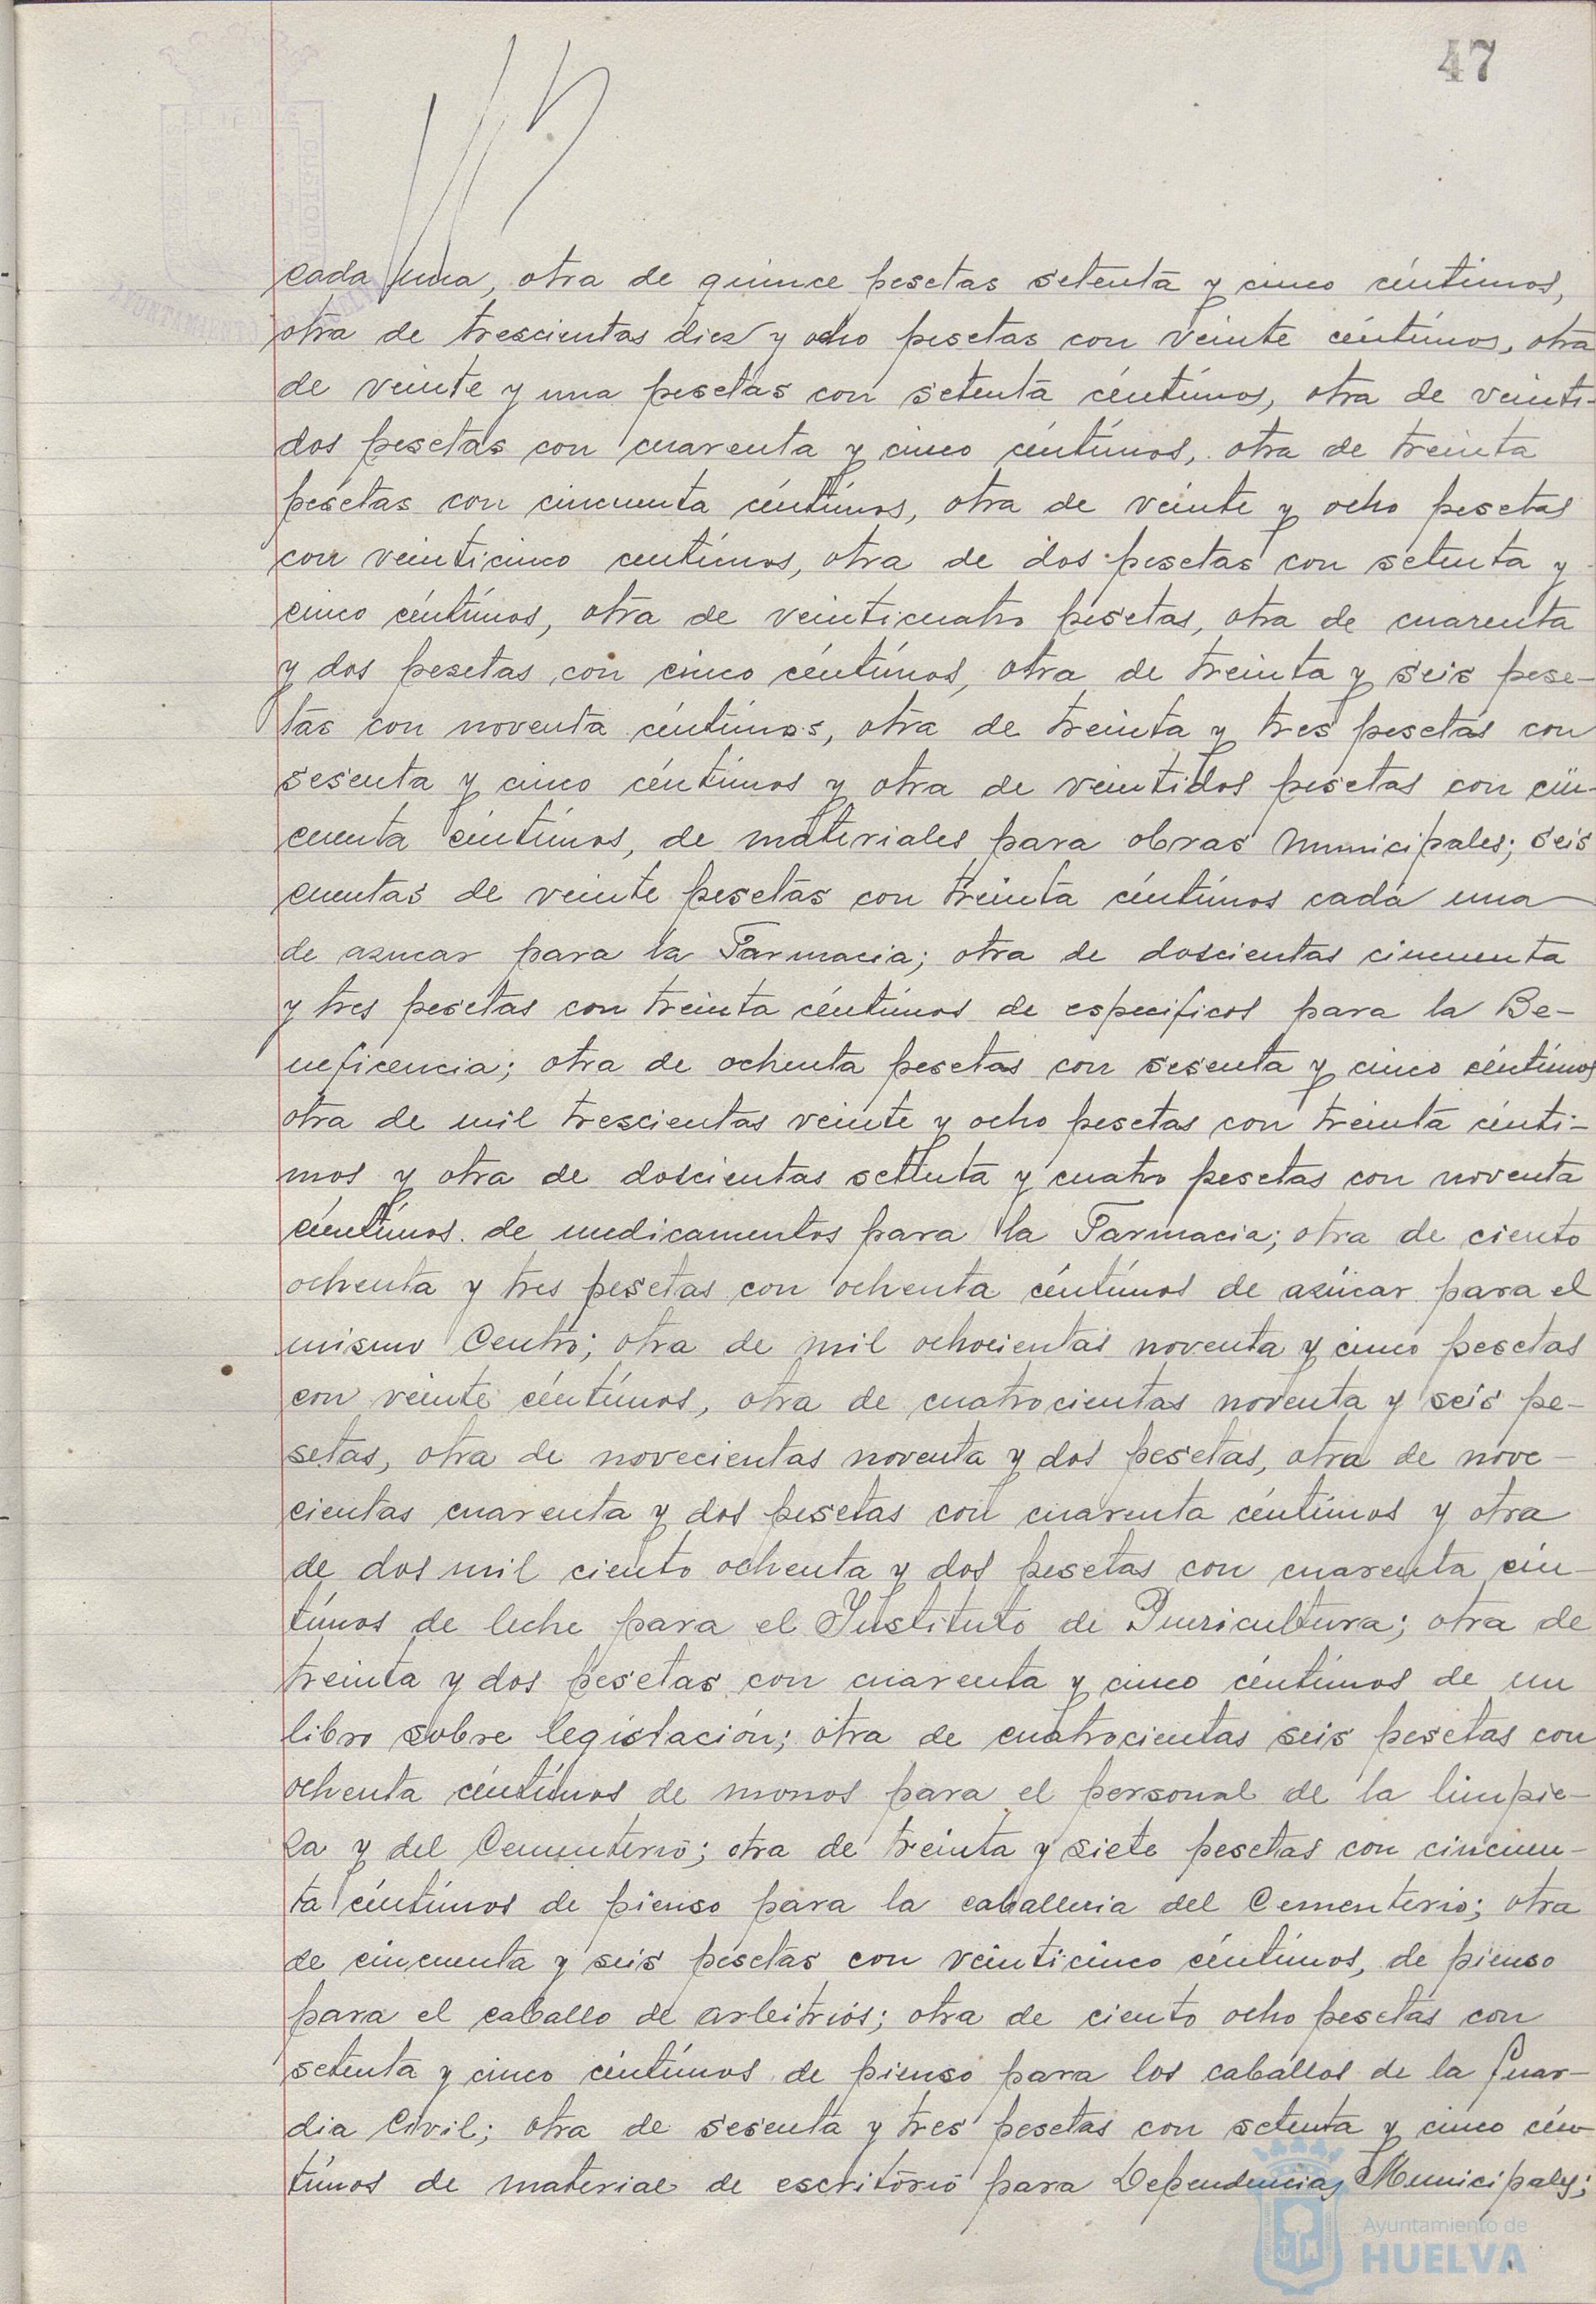 47
cada una, otra de quince pesetas setenta y cinco céntimos,
otra de trescientas diez y ocho pesetas con veinte céntimos, otra
de veinte y una pesetas con setenta céntimos, otra de veinti-
dos pesetas con cuarenta y cinco céntimos, otra de treinta
pesetas con cincuenta céntimos, otra de veinte y ocho pesetas
con veinticinco centimos, otra de dos pesetas con setenta y
cinco céntimos, otra de veinticuatro pesetas, otra de cuarenta
y dos pesetas con cinco céntimos, otra de treinta y seis pese-
tas con noventa céntimos, otra de treinta y tres pesetas con
sesenta y cinco céntimos y otra de veintidos pesetas con cin-
cuenta céntimos, de materiales para obras municipales; seis
cuentas de veinte pesetas con treinta céntimos cada una
de azucar para la Farmacia; otra de doscientas cincuenta
y tres pesetas con treinta céntimos de especificos para la Be-
neficencia; otra de ochenta pesetas con sesenta y cinco céntimos
otra de mil trescientas veinte y ocho pesetas con treinta cénti-
mos y otra de doscientas setenta y cuatro pesetas con noventa
céntimos. de medicamentos para la Farmacia; otra de ciento
ochenta y tres pesetas con ochenta céntimos de azúcar para el
mismo Centro; otra de mil ochocientas noventa y cinco pesetas
con veinte céntimos, otra de cuatrocientas noventa y seis pe-
setas, otra de novecientas noventa y dos pesetas, otra de nove-
cientas cuarenta y dos pesetas con cuarenta céntimos y otra
de dos mil ciento ochenta y dos pesetas con cuarenta cén-
timos de leche para el Instituto de Puericultura; otra de
treinta y dos pesetas con cuarenta y cinco céntimos de un
libro sobre legislación; otra de cuatrocientas seis pesetas con
ochenta céntimos de monos para el personal de la limpie-
za y del Cementerio; otra de treinta y siete pesetas con cincuen-
ta céntimos de pienso para la caballeria del Cementerio; otra
de cincuenta y seis pesetas con veinticinco céntimos, de pienso
para el caballo de arbitrios; otra de ciento ocho pesetas con
setenta y cinco céntimos de pienso para los caballos de la Guar-
dia Civil; otra de sesenta y tres pesetas con setenta y cinco cén-
timos de material de escritorio para Dependencias Municipales;
Ayuntamiento de
HUELVA